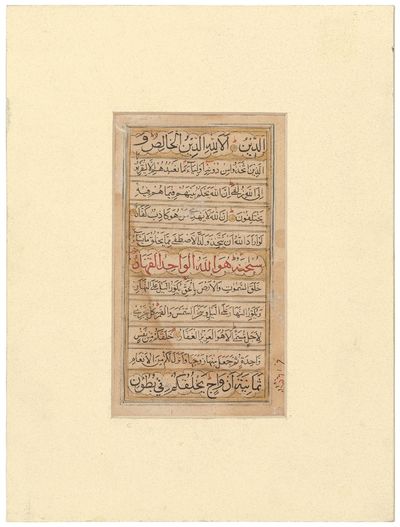 الدِّينَ اَلَا لِلّٰهِ الدِّينُ الْخَالِصُ وَ
الَّذِينَ اتَّخَذُوا مِنْ دُونِهِ اَوْلِيَاءَ مَا نَعْبُدُهُمْ اِلَّا لِيُقَرِّبُونَا
اِلَى اللهِ زُلْفٰى اِنَّ اللهَ يَحْكُمُ بَيْنَهُمْ فِيمَا هُمْ فِيهِ
يَخْتَلِفُونَ اِنَّ اللهَ لَا يَهْدِي مَنْ هُوَ كَاذِبٌ كَفَّارٌ
لَوْ اَرَادَ اللهُ اَنْ يَتَّخِذَ وَلَدًا لَاصْطَفٰى مِمَّا يَخْلُقُ مَا يَشَاءُ
سُبْحٰنَهُ هُوَ اللهُ الْوَاحِدُ الْقَهَّارُ
خَلَقَ السَّمٰوٰتِ وَالْاَرْضَ بِالْحَقِّ يُكَوِّرُ الَّيْلَ عَلَى النَّهَارِ
وَيُكَوِّرُ النَّهَارَ عَلَى الَّيْلِ وَسَخَّرَ الشَّمْسَ وَالْقَمَرَ كُلٌّ يَجْرِي
لِاَجَلٍ مُسَمًّى اَلَا هُوَ الْعَزِيزُ الْغَفَّارُ خَلَقَكُمْ مِنْ نَفْسٍ
وَاحِدَةٍ ثُمَّ جَعَلَ مِنْهَا زَوْجَهَا وَاَنْزَلَ لَكُمْ مِنَ الْاَنْعَامِ
ثَمَانِيَةَ اَزْوَاجٍ يَخْلُقُكُمْ فِي بُطُونِ